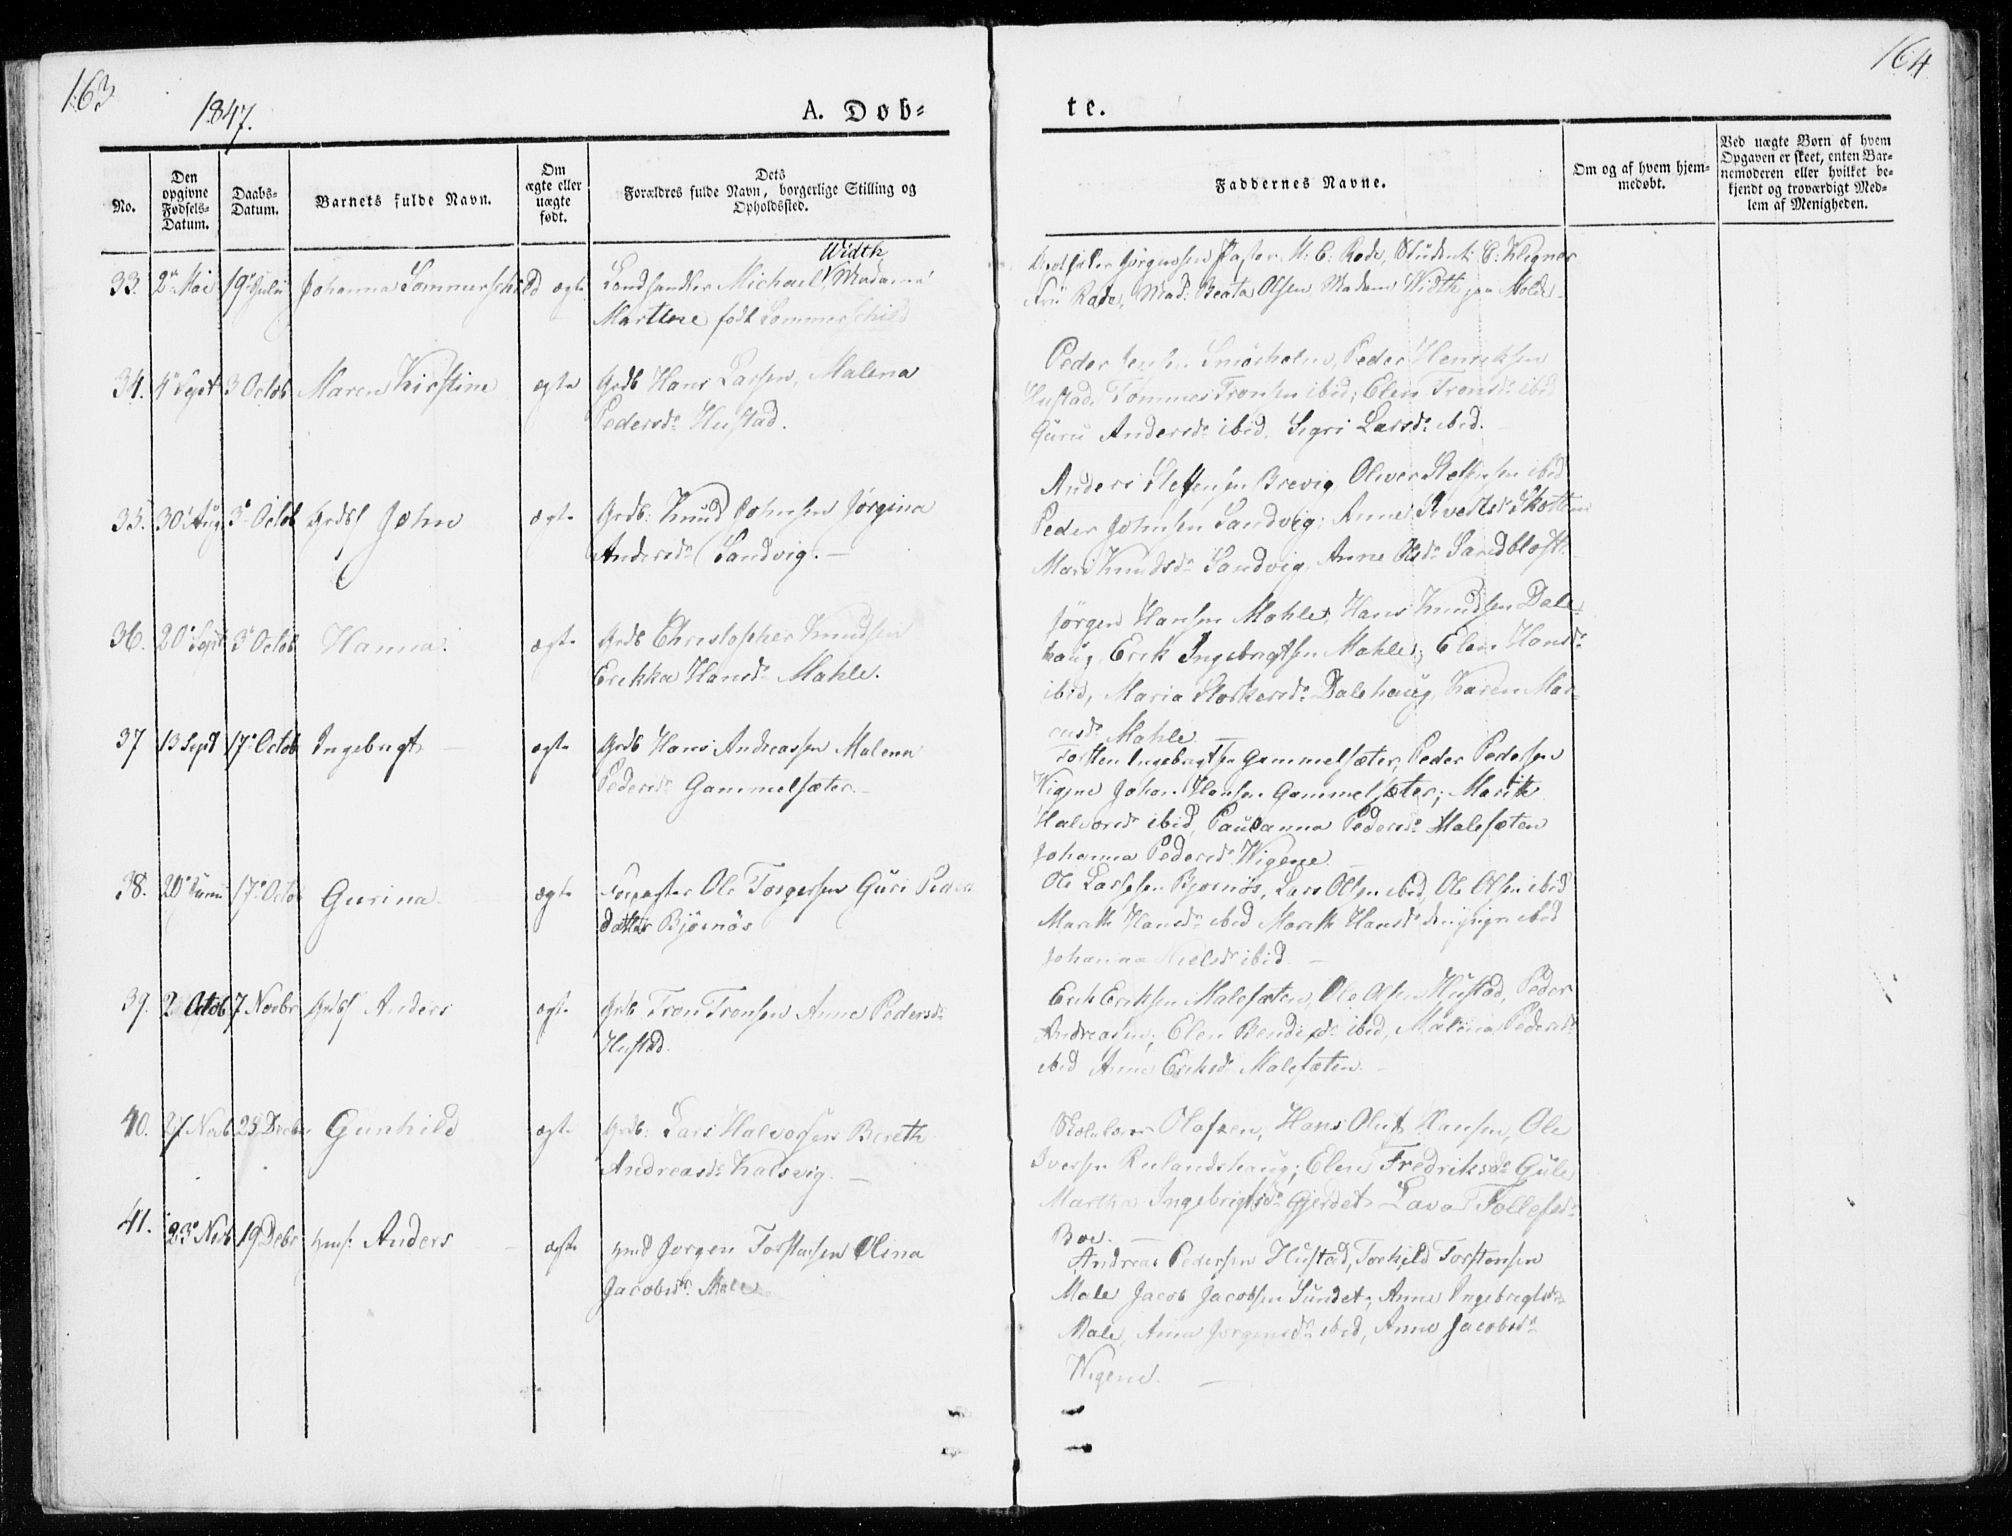 163
164
1847.
A. Døb-
te.
No.
Den opgivne Fødsels-Datum.
Daabs-Datum.
Barnets fulde Navn.
Om ægte eller uægte født.
Dets Forældres fulde Navn, borgerlige Stilling og Opholdssted.
Faddernes Navne.
Om og af hvem hjem-medøbt.
Ved uægte Børn af hvem Opgaven er skeet, enten Bar-nemoderen eller hvilket be-kjendt og troværdigt Med-lem af Menigheden.
33. 2n Mai 19 Juli Johanna Sommerschild ægte Landhandler Michael Width, Madame
Martine født Sommerschild
Jørgensen Pastor H. C. Rode, Student
Fru Rode, Mad: Beata Olsen Madam Width Molde
34. 4 Sept 3 Octob Maren Kirstine ægte Grdb Hans Larsen, Malena
Pedersdr Hustad.
Peder Jensen Smørholm, Peder Henriksen
Hustad, Tommes Tronsen ibid; Elen Tronsdr ibid
Guru Andersdr ibid, Sigri Larsdr ibid.
35. 30 Aug 3 Octob John ægte Grdb: Knud Johnsen Jørgina
Andersdr Sandvig.
Anders Steffensen Brevig, Oliver Steffensen ibid
Peder Johnsen Sandvig; Anne
Mari Knudsdr Sandvig, Anne Olsdr Sandbløst.
36. 20 Sept 3 Octob Hanna ægte Grdb Christopher Knudsen
Erikka Hansdr Mahle.
Jørgen Hansen Mahle, Hans Knudsen Dale-
haug, Erik Ingebrigtsen Mahle; Elen Hansdr
ibid, Maria Dalehaug, Karen Mar-
cusdr Mahle
37 13 Sept 17 Octob Ingebrigt ægte Grdb Hans Andreassen Malena
Pedersdr Gammelsæter.
Torsten Ingebrigtsen Gammelsæter, Peder Pedersen
Wigene Johan Hansen Gammelsæter; Marith
Halvorsdr ibid, Paulanna Pedersdr Malefæten
Johanna Pedersdr Wigene
38. 20 Juni 17 Octob Gurina ægte Forpagter Ole Torgersen Guri Peders
datter Bjørnøs
Ole Larssen Bjørnøs, Lars Olsen ibid, Ole Olsen ibid
Marith Hansdr ibid Marith Hansdr ibid
Johanna Nielsdr ibid
39. 2 Octob 7 Novbr Anders ægte Grdb Tron Tronsen Anne Pedersdr
Hustad.
Erik Eriksen Malefæten, Ole Olsen Hustad, Peder
Andreasen; Elen Bendixdr ibid, Malena Pedersdr
ibid Anne Eriksdr Malefæten.
40. 27 Novb Gunhild ægte Grdb: Lars Halvorsen Bereth
Andreasdr Kalsvig.
Skolelærer Olafsen, Hans Oluf Hansen, Ole
Iversen; Elen Fredriksdr Gule
Martha Ingebrigtsdr Gjerdet Lava Tollefsdr
Boe.
41. 23 Novb 19 Debr Anders ægte Hmd Jørgen Torstensen Olina
Jacobsdr. Male
Andreas Pedersen Hustad, Torkild Torstensen
Male Jacob Jacobsen Sundet; Anne Ingebrigtsdr
Male, Anne Jørgensdr ibid, Anne Jacobsdr
Wigene.